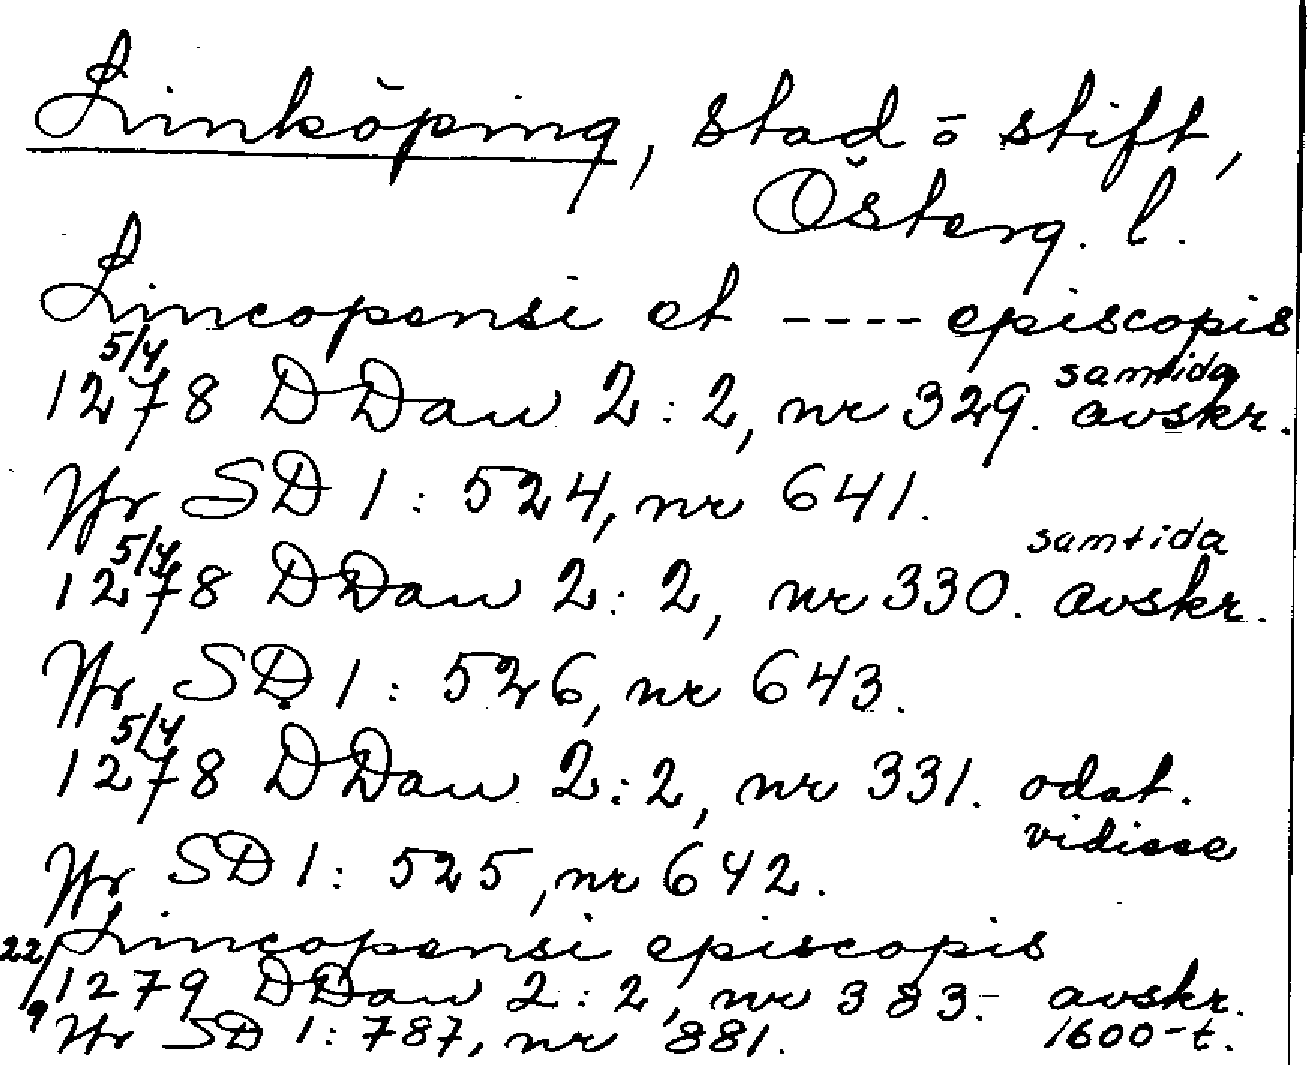 Linköping, stad ō stift,
Österg. l.
Lincopensi et ---- episcopis
5/4 samtida
1278 DDan 2:2, nr 329. avskr.
Jfr SD 1: 524, nr 641.
5/4 samtida
1278 DDan 2:2, nr 330. avskr.
Jfr SD 1: 526, nr 643.
5/4
1278 DDan 2:2, nr 331. odat.
vidisse
Jfr SD 1: 525, nr 642.
Lincopensi episcopis
22/9 1279 DDan 2:2, nr 383.- avskr.
Jfr SD 1: 787, nr 881. 1600-t.